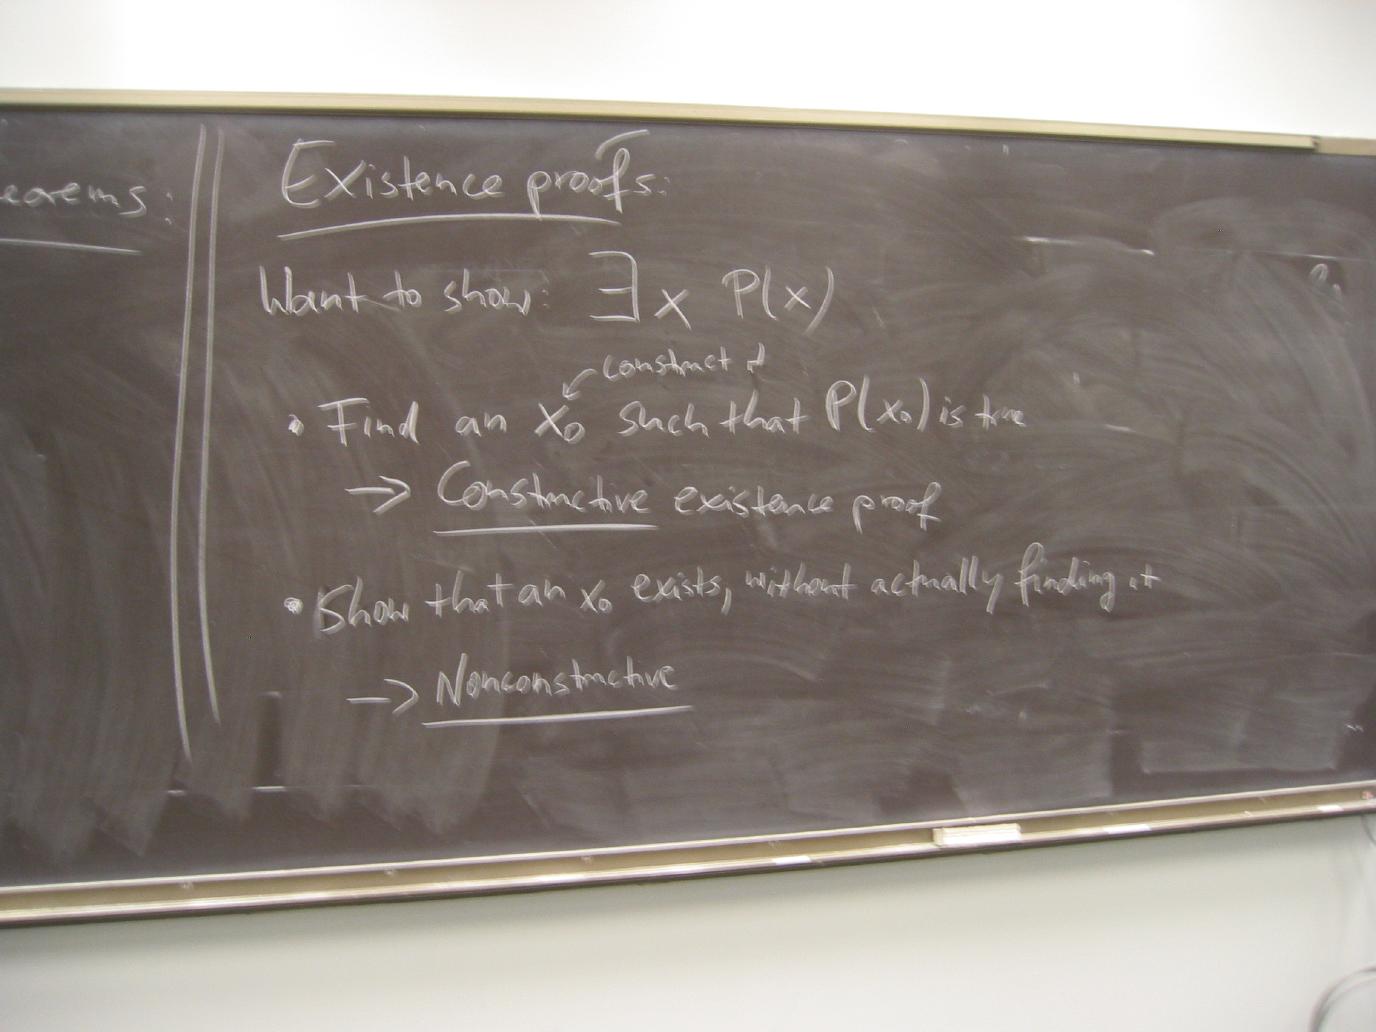 eorems:
Existence proofs:
Want to show: ∃x P(x)
construct it
• Find an x₀ such that P(x₀) is true
→ Constructive existence proof
• Show that an x₀ exists, without actually finding it
→ Nonconstructive